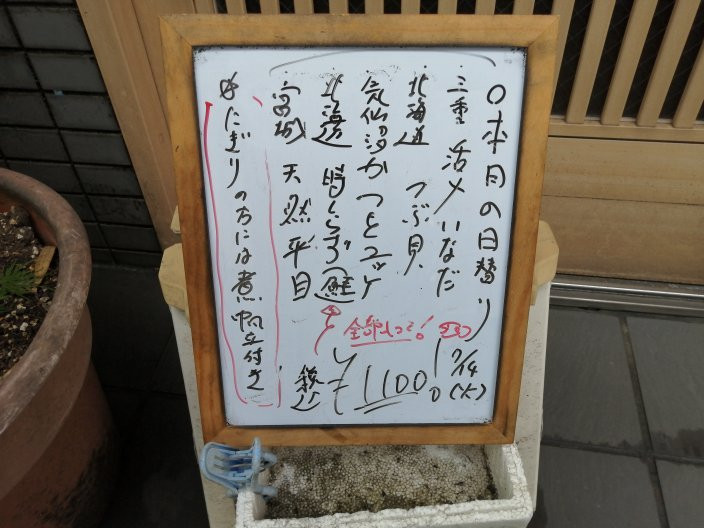 ○本日の日替り
7/14(火)
三重 活〆 いなだ
北海道 つぶ貝
気仙沼 かつをユッケ
北海道 時しらず(鮭)
宮城 天然平目
全部入って!
¥1100
税込
にぎりの方には煮帆立付き